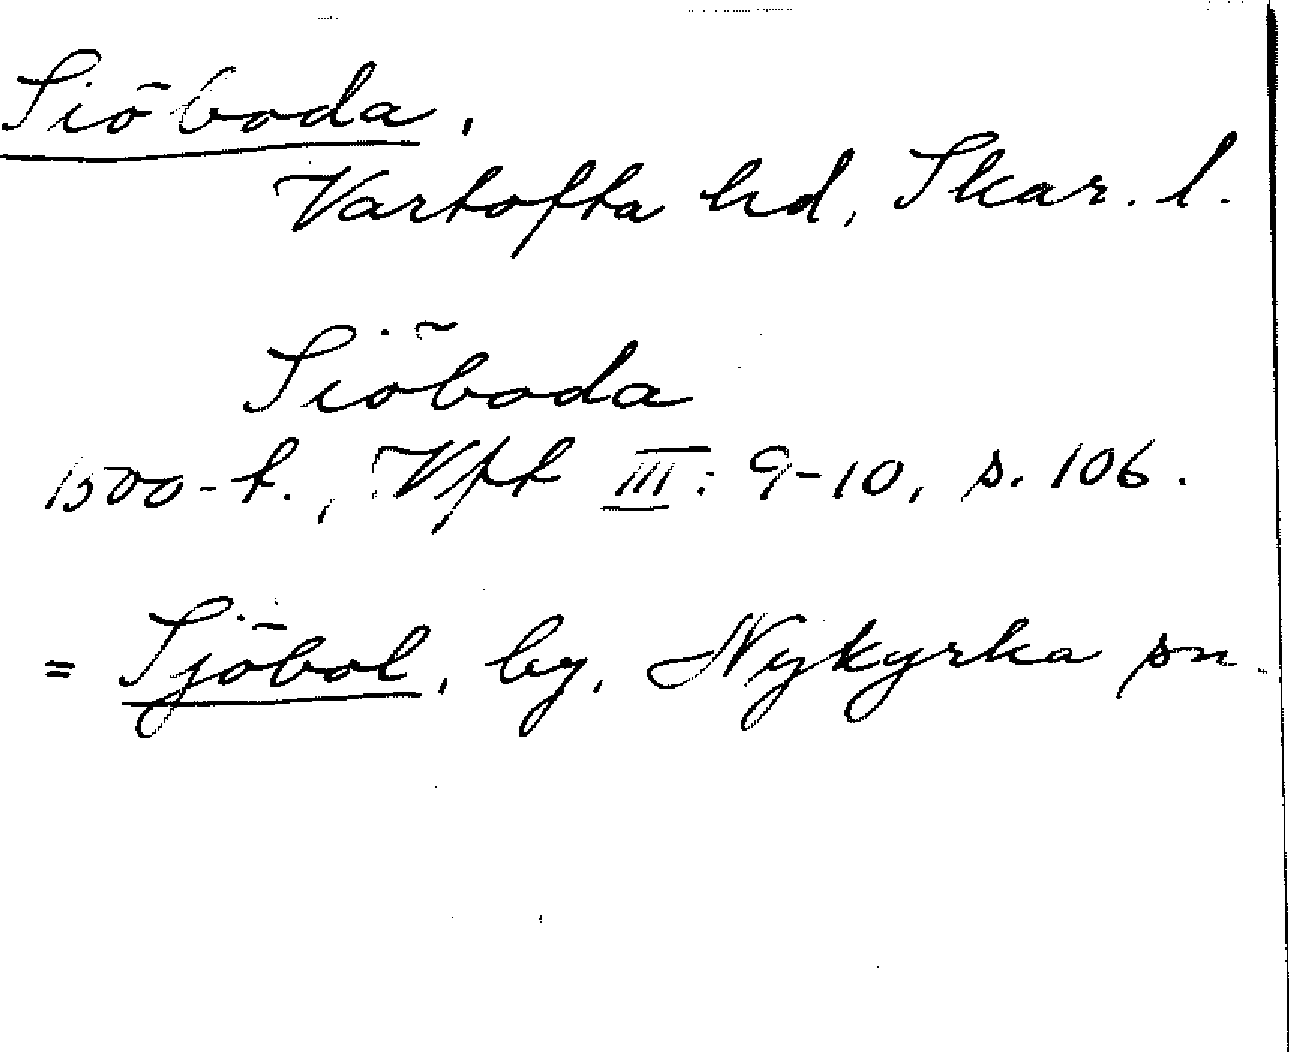 Siöboda,
Vartofta hd, Skar. l.
Siöboda
1500-t., Vft III: 9-10, s. 106.
= Sjöbol, by, Nykyrka sn.